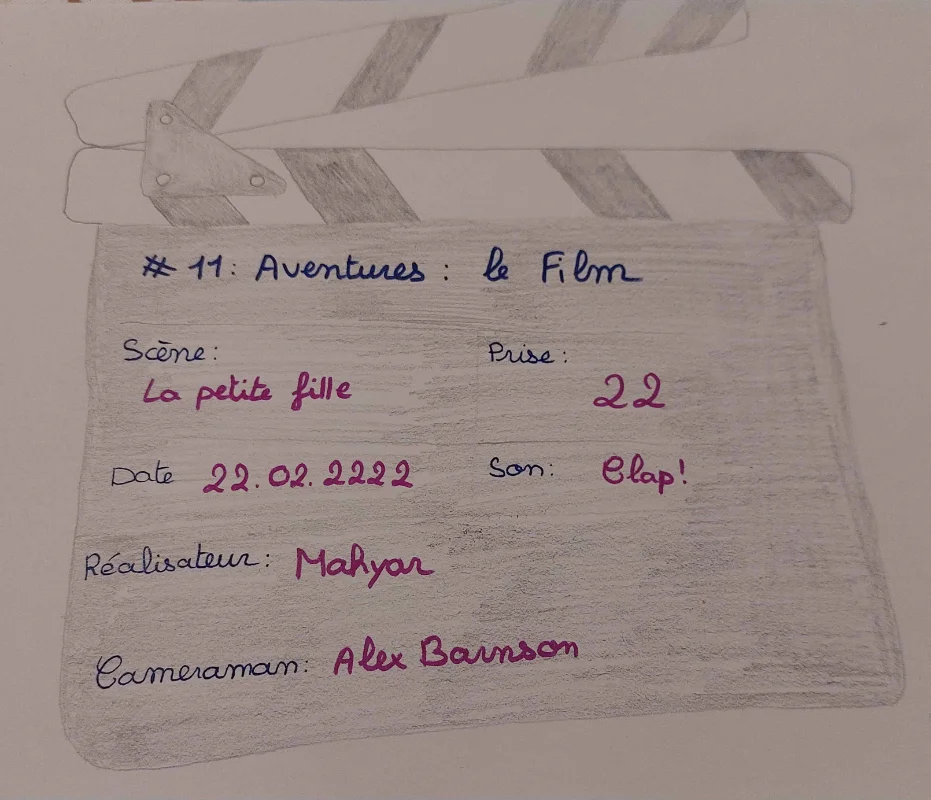 # 11: Aventures : le Film
Scène: Prise:
La petite fille 22
Date 22.02.2222 Son: Clap!
Réalisateur: Mahyar
Cameraman: Alex Barnson